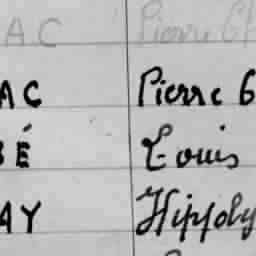 AC Pierre
AC Pierre G
BÉ Louis
AY Hippoly